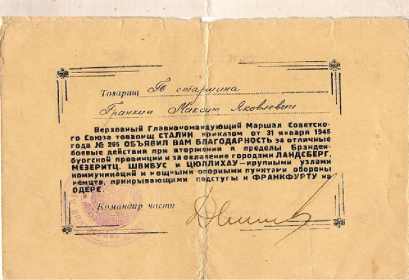 Товарищ Гв старшина
Гранкин Максим Яковлевич
Верховный Главнокомандующий Маршал Советско-
го Союза товарищ СТАЛИН приказом от 31 января 1945
года № 265 ОБЪЯВИЛ ВАМ БЛАГОДАРНОСТЬ за отличные
боевые действия при вторжении в пределы Бранден-
бургской провинции и за овладение городами ЛАНДСБЕРГ,
МЕЗЕРИТЦ, ШВИБУС и ЦЮЛЛИХАУ—крупными узлами
коммуникаций и мощными опорными пунктами обороны
немцев, прикрывающими подступы к ФРАНКФУРТУ на
ОДЕРЕ.
Командир части